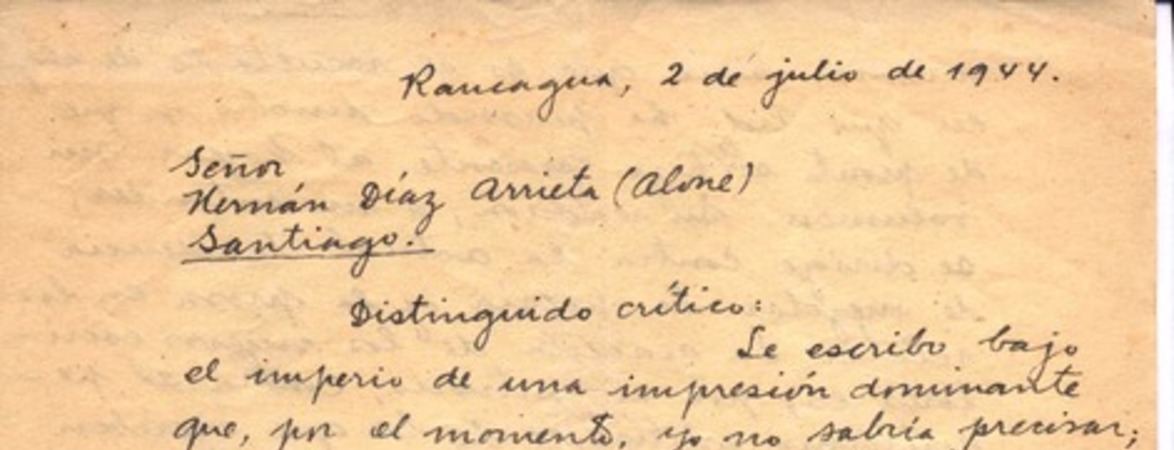 Rancagua, 2 de julio de 1944.
Señor
Hernán Díaz Arrieta (Alone)
Santiago.
Distinguido crítico:
Le escribo bajo
el imperio de una impresión dominante
que, por el momento, yo no sabría precisar;